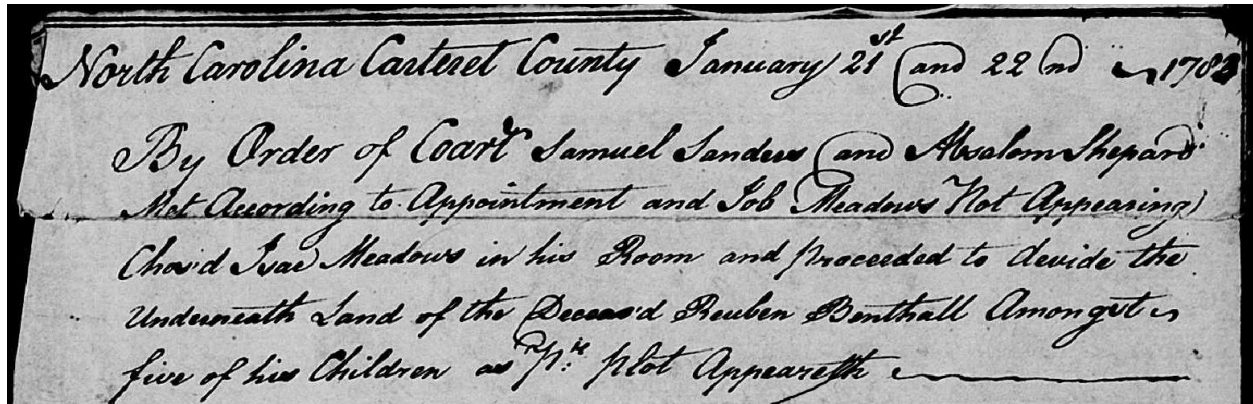 North Carolina Carteret County January 21st and 22nd 1783
By Order of Coart Samuel Sanders and Absalom Shepard
Met According to Appointment and Job Meadows Not Appearing
Chos'd Isac Meadows in his Room and proceeded to devide the
Underneath Land of the Deceas'd Reuben Benthall Amongst
five of his Children as plot Appeareth